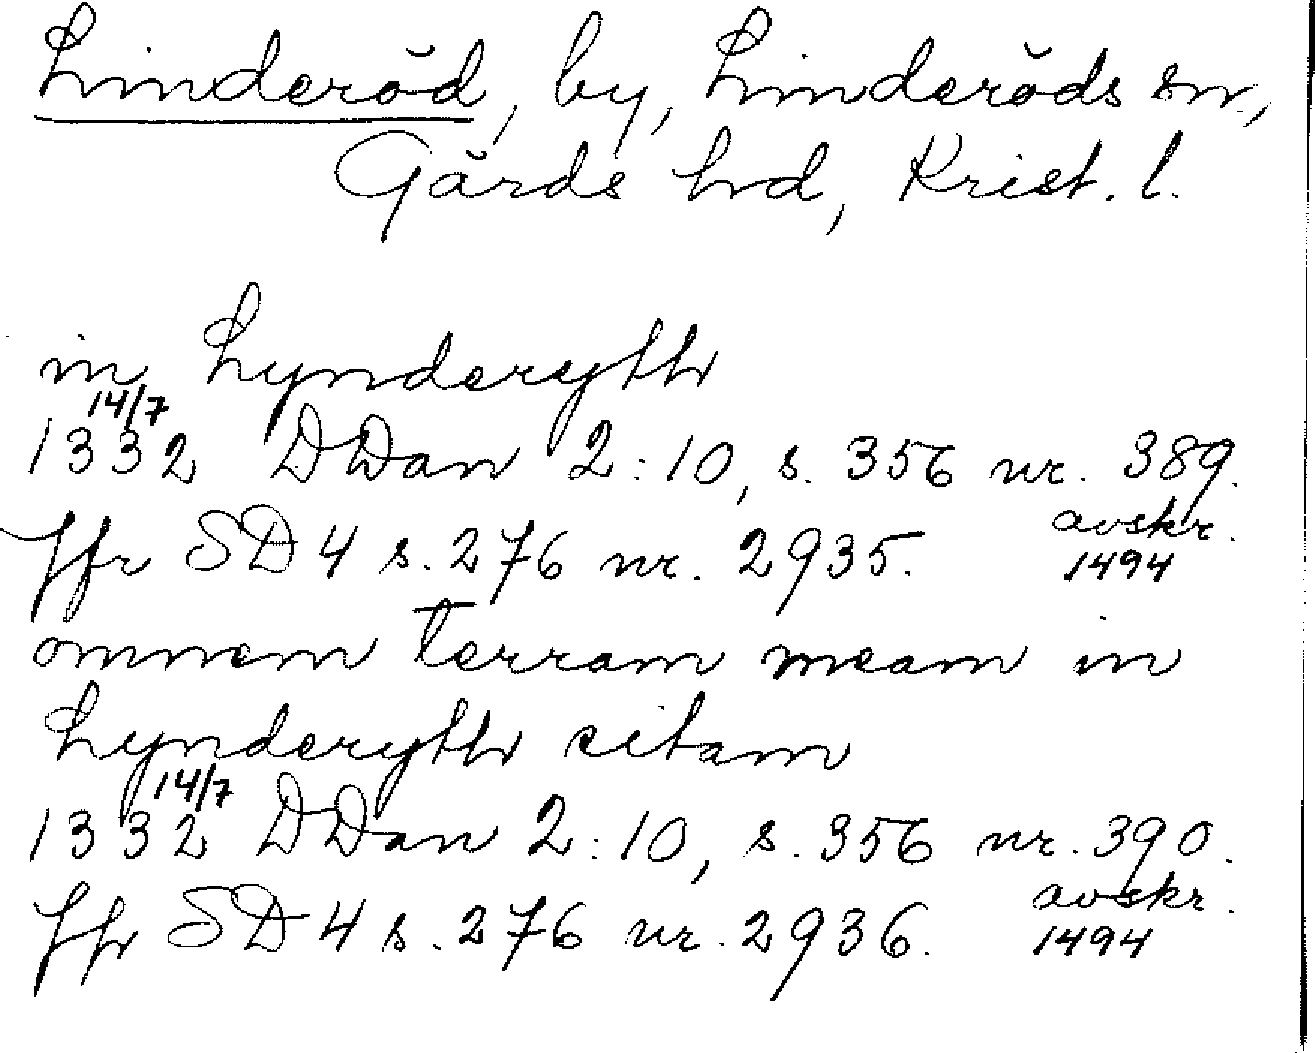 Linderöd, by, Linderöds sn,
Gärds hd, Krist. l.
in Lynderyth
14/7
1332 DDan 2:10, s. 356 nr. 389.
avskr.
Jfr SD 4 s. 276 nr. 2935. 1494
omnem terram meam in
Lynderyth sitam
14/7
1332 DDan 2:10, s. 356 nr. 390.
avskr.
Jfr SD 4 s. 276 nr. 2936. 1494